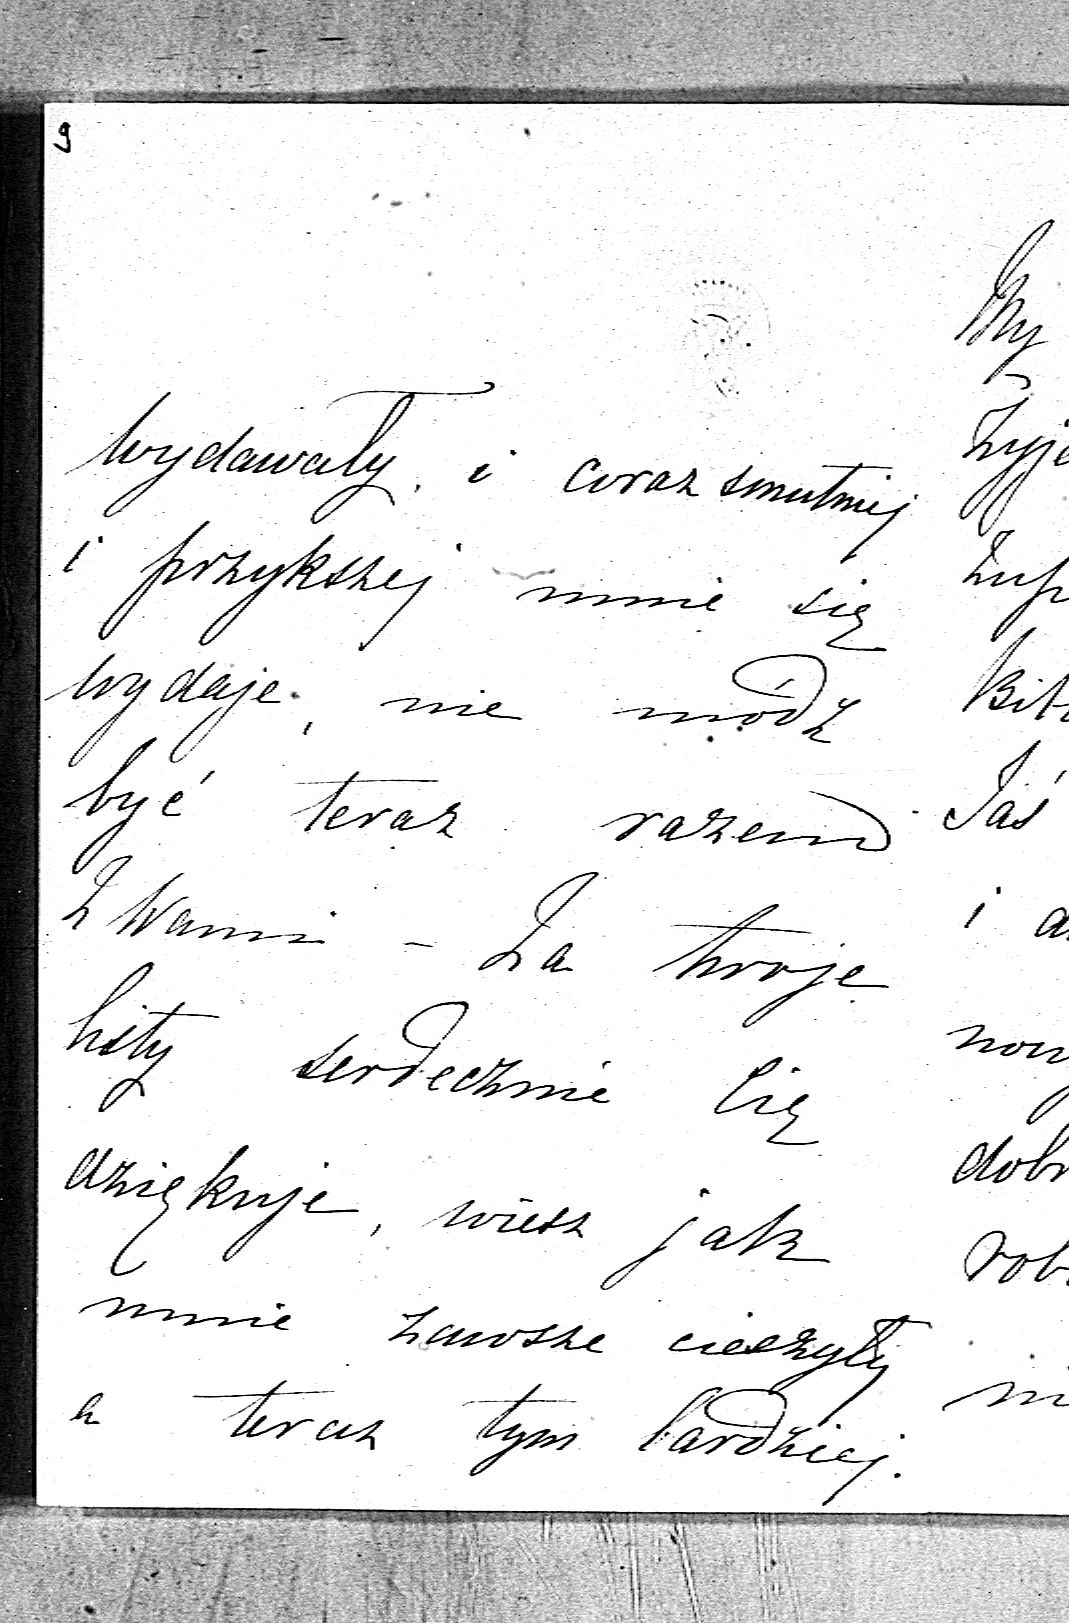 9
wydawały, i coraz smutniej
i przykszej mnie się
wydaje, nie módz
być teraz razem
z Wami – Za twoje
listy serdecznie Cię
dziękuje, wiesz jak
mnie zawsze cieszyły
a teraz tym bardziej.
My
Jaś
i